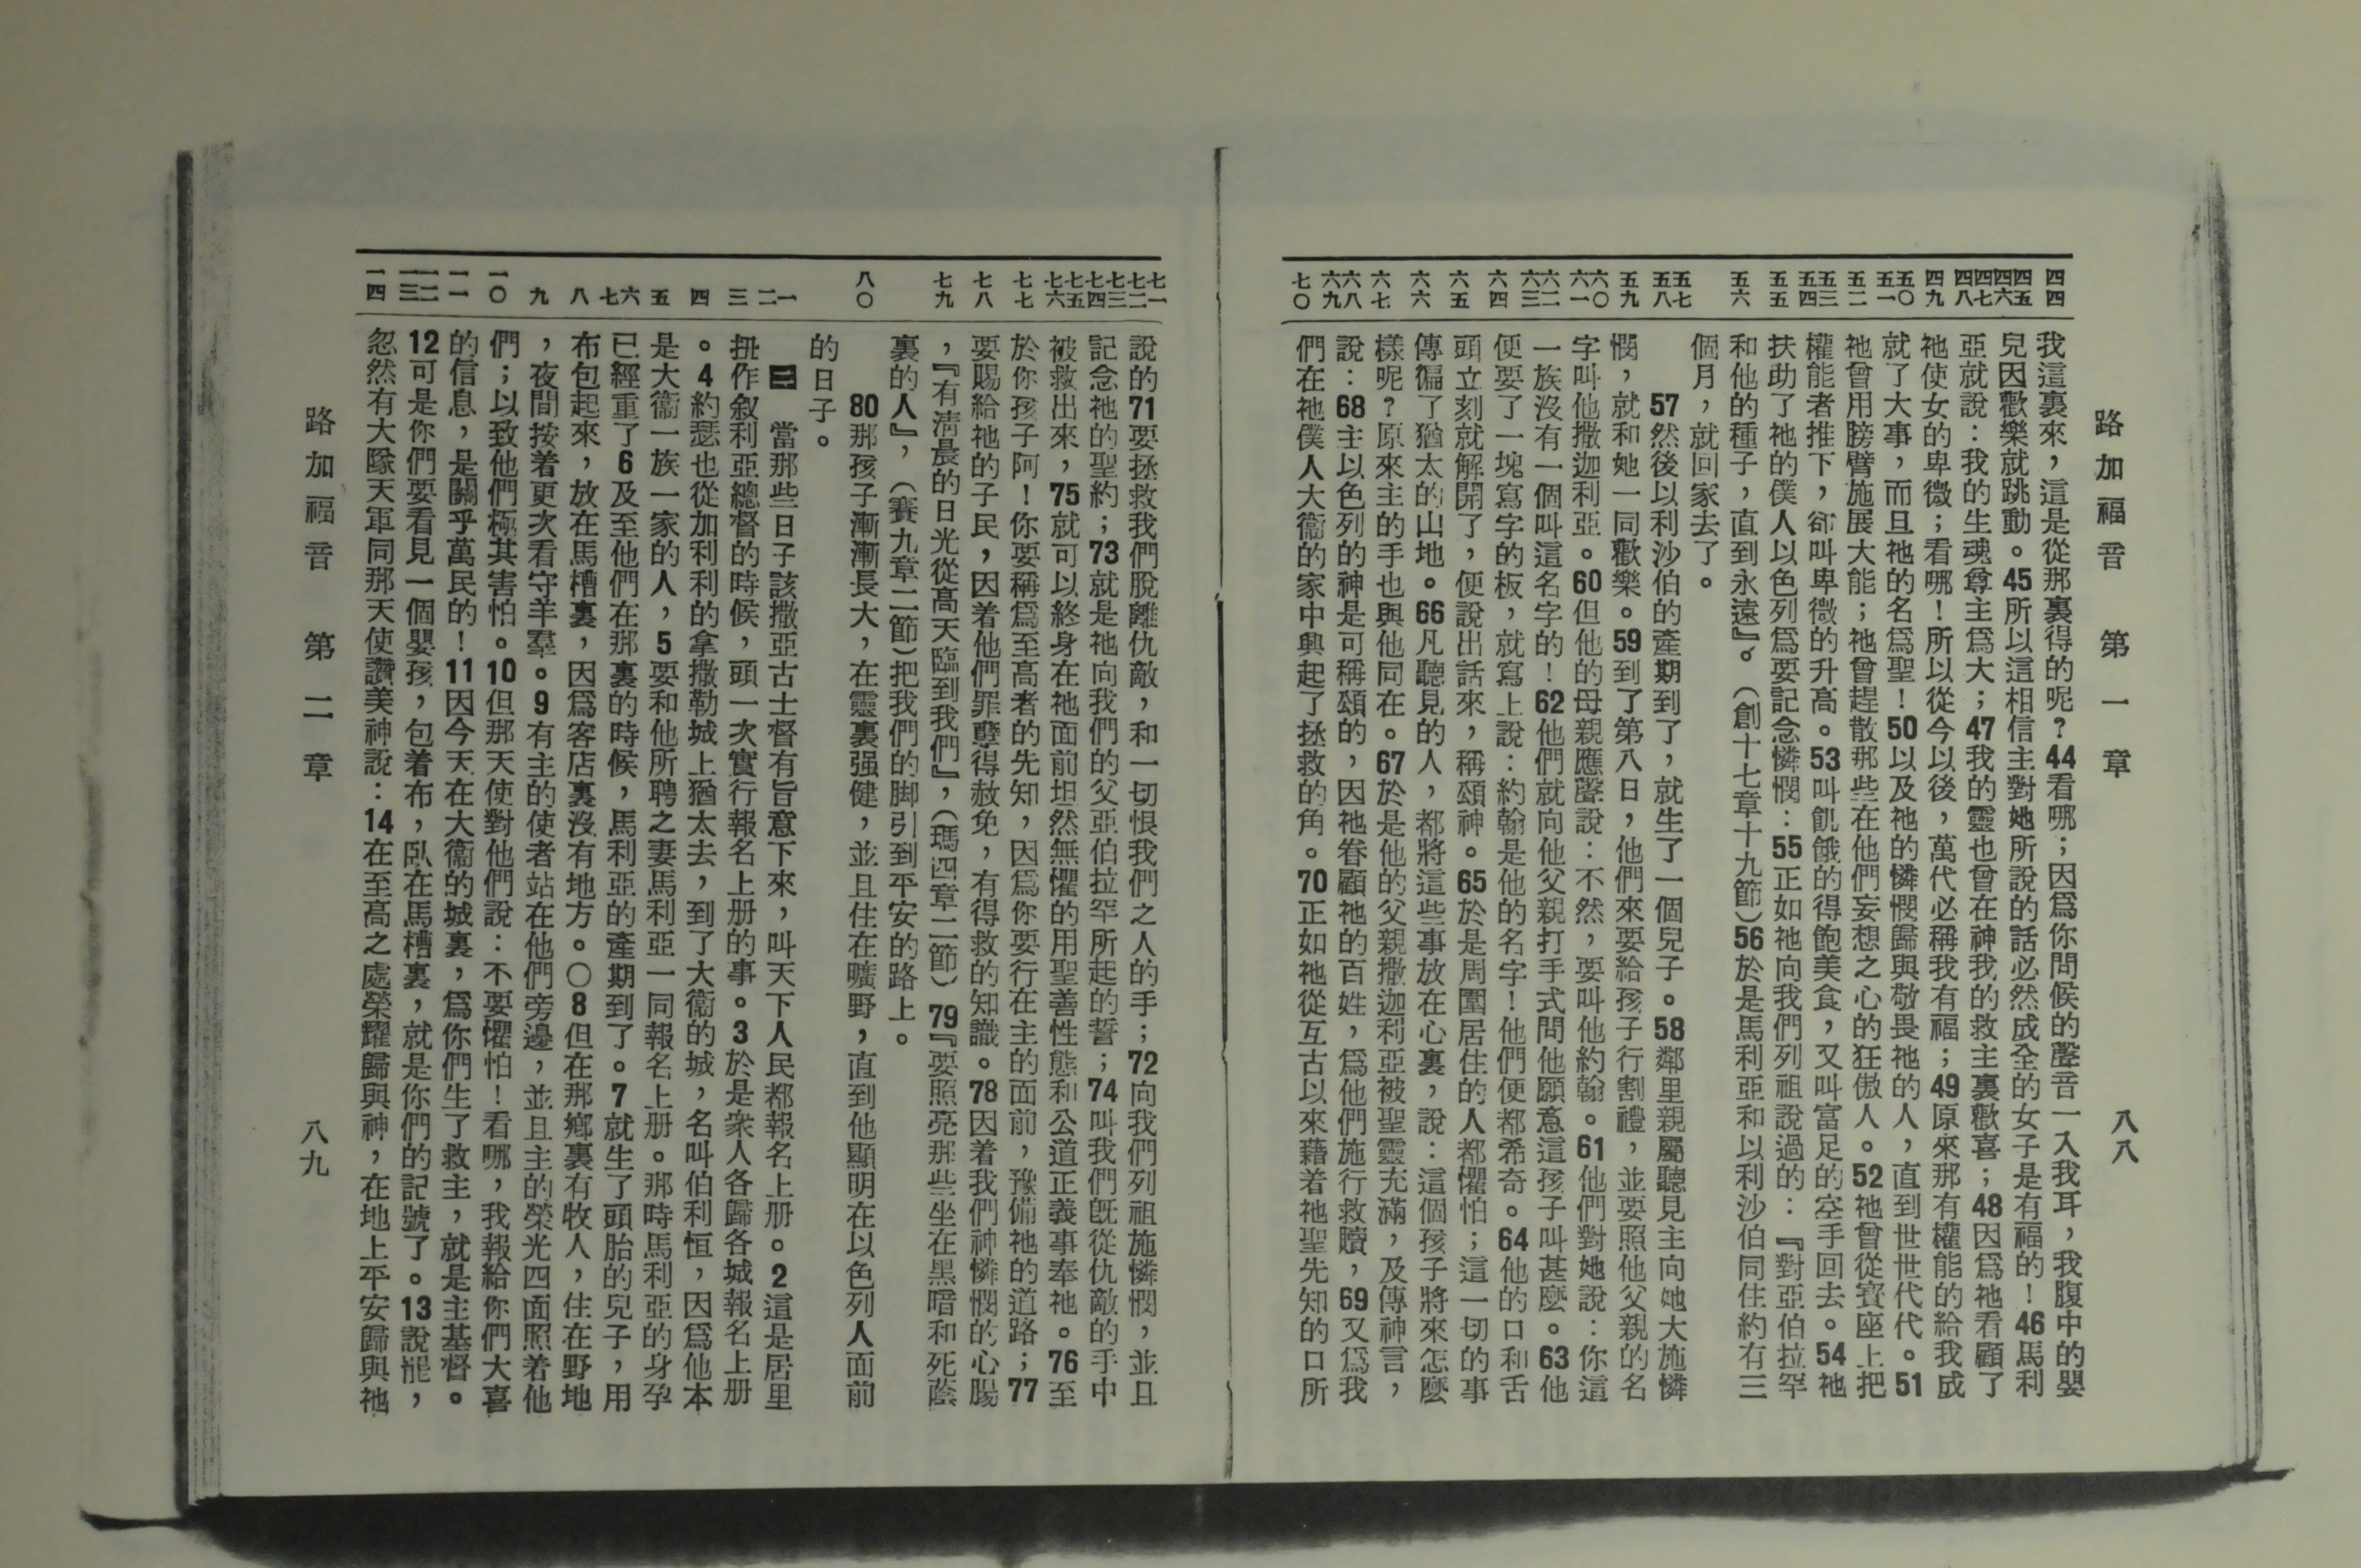 路加福音　第一章　八八
四四 四五 四六 四七 四八 四九 五〇 五一 五二 五三 五四 五五 五六 五七 五八 五九 六〇 六一 六二 六三 六四 六五 六六 六七 六八 六九 七〇
我這裏來，這是從那裏得的呢？44看哪；因爲你問候的聲音一入我耳，我腹中的嬰
兒因歡樂就跳動。45所以這相信主對她所說的話必然成全的女子是有福的！46馬利
亞就說：我的生魂尊主爲大；47我的靈也曾在神我的救主裏歡喜；48因爲祂看顧了
祂使女的卑微；看哪！所以從今以後，萬代必稱我有福；49原來那有權能的給我成
就了大事，而且祂的名爲聖！50以及祂的憐憫歸與敬畏祂的人，直到世世代代。51
祂曾用膀臂施展大能；祂曾趕散那些在他們妄想之心的狂傲人。52祂曾從寶座上把
權能者推下，卻叫卑微的升高。53叫飢餓的得飽美食，又叫富足的空手回去。54祂
扶助了祂的僕人以色列爲要記念憐憫：55正如祂向我們列祖說過的：『對亞伯拉罕
和他的種子，直到永遠』。（創十七章十九節）56於是馬利亞和以利沙伯同住約有三
個月，就回家去了。
57然後以利沙伯的產期到了，就生了一個兒子。58鄰里親屬聽見主向她大施憐
憫，就和她一同歡樂。59到了第八日，他們來要給孩子行割禮，並要照他父親的名
字叫他撒迦利亞。60但他的母親應聲說：不然，要叫他約翰。61他們對她說：你這
一族沒有一個叫這名字的！62他們就向他父親打手式問他願意這孩子叫甚麼。63他
便要了一塊寫字的板，就寫上說：約翰是他的名字！他們便都希奇。64他的口和舌
頭立刻就解開了，便說出話來，稱頌神。65於是周圍居住的人都懼怕；這一切的事
傳徧了猶太的山地。66凡聽見的人，都將這些事放在心裏，說：這個孩子將來怎麼
樣呢？原來主的手也與他同在。67於是他的父親撒迦利亞被聖靈充滿，及傳神言，
說：68主以色列的神是可稱頌的，因祂眷顧祂的百姓，爲他們施行救贖，69又爲我
們在祂僕人大衞的家中興起了拯救的角。70正如祂從亙古以來藉着祂聖先知的口所
七一 七二 七三 七四 七五 七六 七七 七八 七九 八〇 一 二 三 四 五 六 七 八 九 一〇 一一 一二 一三 一四
說的71要拯救我們脫離仇敵，和一切恨我們之人的手；72向我們列祖施憐憫，並且
記念祂的聖約；73就是祂向我們的父亞伯拉罕所起的誓；74叫我們旣從仇敵的手中
被救出來，75就可以終身在祂面前坦然無懼的用聖善性態和公道正義事奉祂。76至
於你孩子阿！你要稱爲至高者的先知，因爲你要行在主的面前，豫備祂的道路；77
要賜給祂的子民，因着他們罪孽得赦免，有得救的知識。78因着我們神憐憫的心腸
，『有淸晨的日光從高天臨到我們』，（瑪四章二節）79『要照亮那些坐在黑暗和死蔭
裏的人』，（賽九章二節）把我們的脚引到平安的路上。
80那孩子漸漸長大，在靈裏强健，並且住在曠野，直到他顯明在以色列人面前
的日子。
二　當那些日子該撒亞古士督有旨意下來，叫天下人民都報名上册。2這是居里
扭作叙利亞總督的時候，頭一次實行報名上册的事。3於是衆人各歸各城報名上册
。4約瑟也從加利利的拿撒勒城上猶太去，到了大衞的城，名叫伯利恒，因爲他本
是大衞一族一家的人，5要和他所聘之妻馬利亞一同報名上册。那時馬利亞的身孕
已經重了6及至他們在那裏的時候，馬利亞的產期到了。7就生了頭胎的兒子，用
布包起來，放在馬槽裏，因爲客店裏沒有地方。〇8但在那鄉裏有牧人，住在野地
，夜間按着更次看守羊羣。9有主的使者站在他們旁邊，並且主的榮光四面照着他
們；以致他們極其害怕。10但那天使對他們說：不要懼怕！看哪，我報給你們大喜
的信息，是關乎萬民的！11因今天在大衞的城裏，爲你們生了救主，就是主基督。
12可是你們要看見一個嬰孩，包着布，臥在馬槽裏，就是你們的記號了。13說罷，
忽然有大隊天軍同那天使讚美神說：14在至高之處榮耀歸與神，在地上平安歸與祂
路加福音　第二章　八九